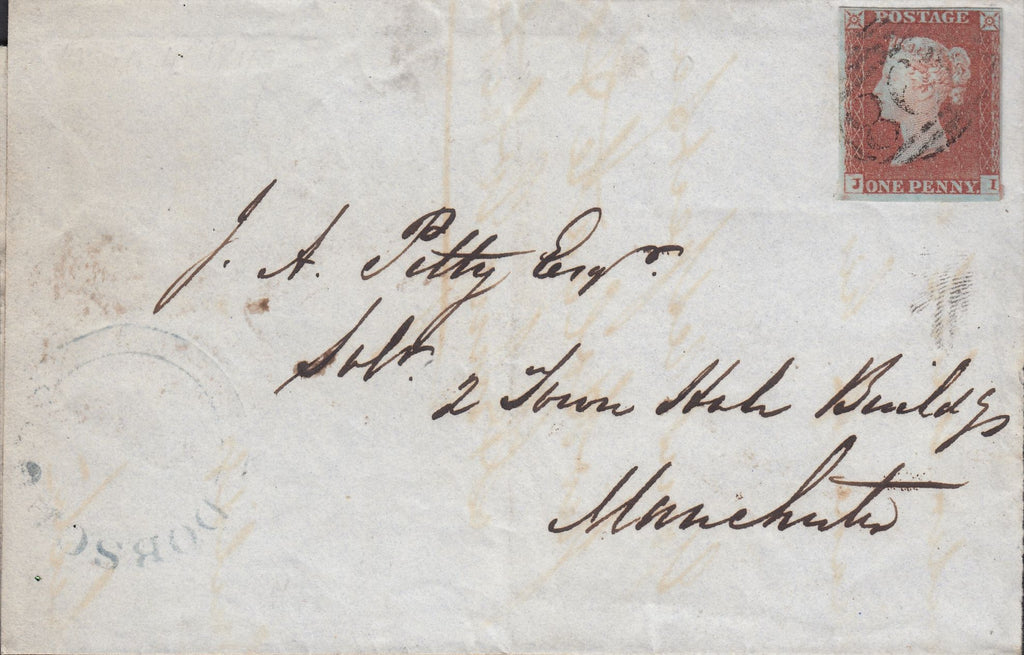 POSTAGE
J ONE PENNY I
J. A. Petty Esqr.
Solr.
2 Town Hall Buildgs
Manchester